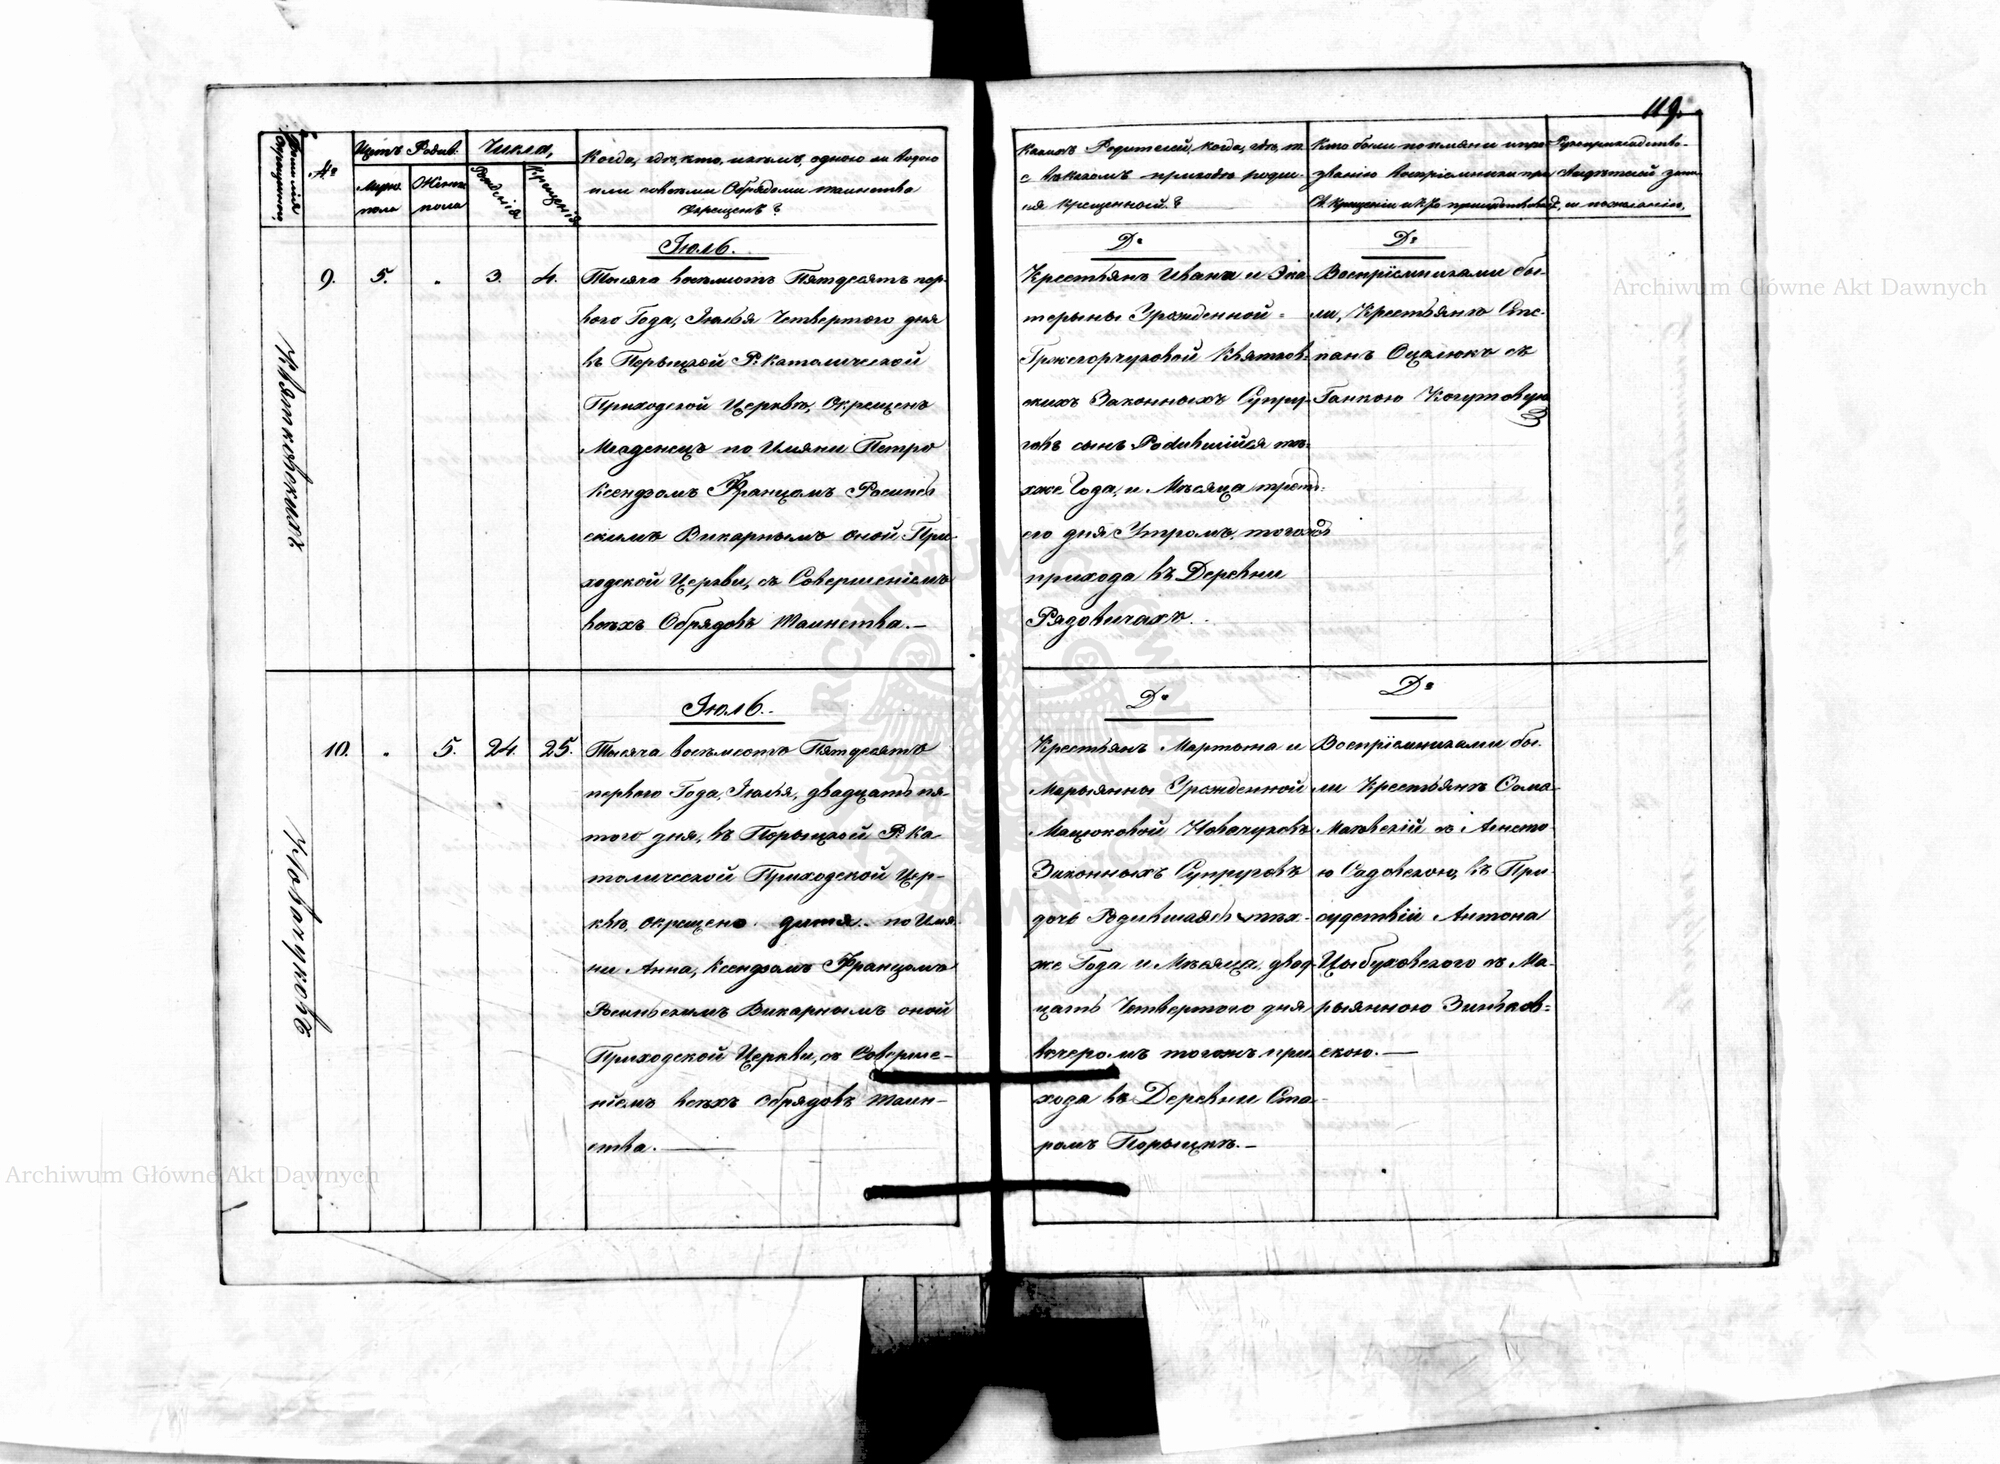 119.
Фамилія Окрещеннаго
№
Щетъ Родив.
Мужс. пола
Женск. пола
Числа,
Рожденія
Крещенія
Когда, гдѣ, кто, изъ чемъ, одною ли водою
или совсѣми Обрядами таинства
окрещенъ?
Какихъ Родителей, когда, гдѣ, и
въ какомъ приходѣ родил-
ся крещенный?
Кто были по имяни и про-
званію воспріемники при
Св. Крещеніи и кто присутствовалъ
Рукоприкладство
свидѣтелей записи
, по желанію,
Іюль.
9. 5. „ 3. 4.
Квятковскихъ
Тысяча восемсотъ Пятдесятъ пер-
вого Года, Іюлья Четвертого дня
въ Порыцкой Р. Католической
Приходской Церквѣ, Окрещенъ
Младенецъ по Имяни Петро
Ксендзомъ Францомъ Росинсь-
скимъ Викарнымъ оной При-
ходской Церкви, съ Совершеніемъ
всѣхъ Обрядовъ Таинства.—
До
Крестьянъ Ивана и Эка-
терыны Урожденной
Гржегорчуковой Квятков-
скихъ Законныхъ Супру-
говъ сынъ Родившійся то-
хже Года, и Мѣсяца треть-
его дня Утромъ, тогожъ
прихода въ Деревни
Рядовичахъ.
До
Воспріемниками бы-
ли, Крестьянъ Сте-
панъ Оцалюкъ съ
Ганкою Когутовую
Іюль.
10. „ 5. 24. 25.
Новачуковъ
Тысяча восемсотъ Пятдесятъ
первого Года, Іюлья, двадцать пя-
того дня, въ Порыцкой Р. Ка-
толической Приходской Цер-
квѣ, окрещено дитя по Имя-
ни Анна, Ксендзомъ Францомъ
Росинскимъ Викарнымъ оной
Приходской Церкви, съ Соверше-
ніемъ всѣхъ обрядовъ таин-
ства.—
До
Крестьянъ Мартына и
Марыянны Урожденной
Мацюковой Новачуковъ
Законныхъ Супруговъ
дочь Родившаяся тѣх-
же Года и Мѣсяца, двад-
цать Четвертого дня
вечеромъ тогожъ при-
хода въ Деревни Ста-
ромъ Порыцкѣ.—
До
Воспріемниками бы-
ли Крестьянъ Сома
Маевскій съ Ането-
ю Садовскою, въ При-
судствіи Антона
Цыбуховского съ Ма-
рыянною Зиньков-
скою.—
Archiwum Główne Akt Dawnych
Archiwum Główne Akt Dawnych